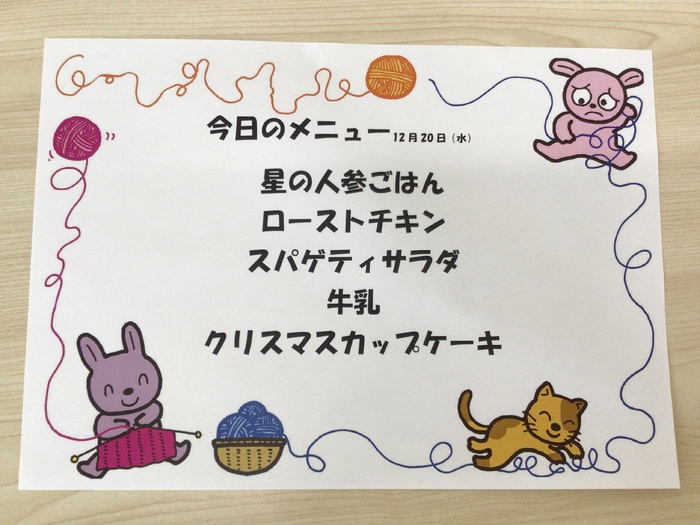 今日のメニュー 12月20日（水）
星の人参ごはん
ローストチキン
スパゲティサラダ
牛乳
クリスマスカップケーキ